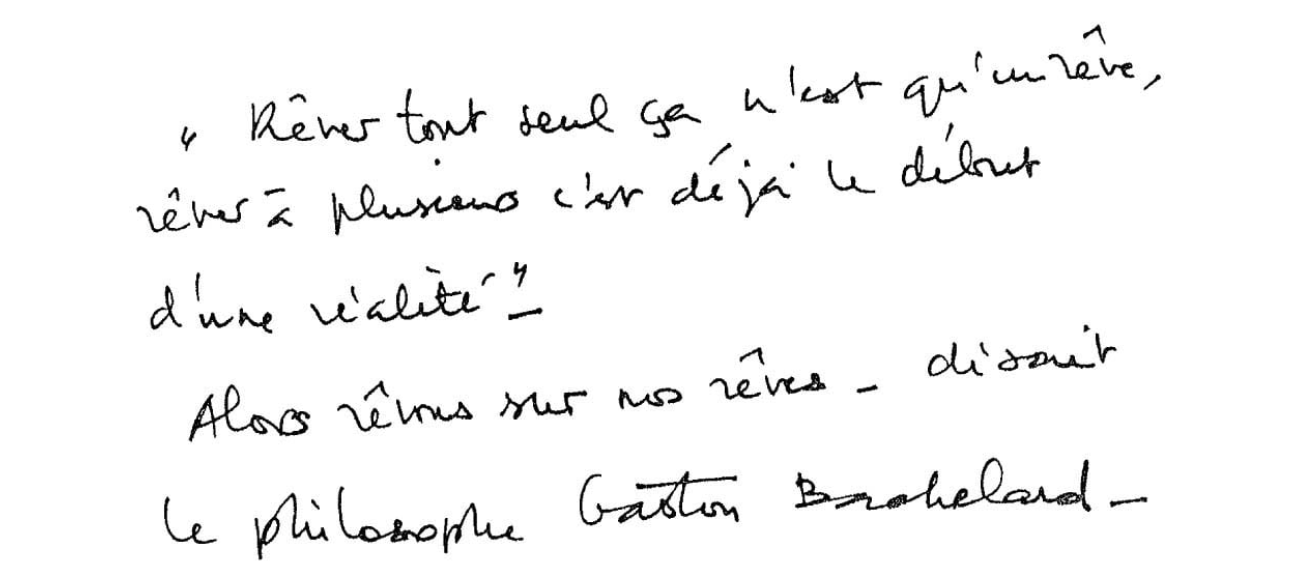 " Rêver tout seul ça n'est qu'un rêve,
rêver à plusieurs c'est déjà le début
d'une réalité" _
Alors rêvons sur nos rêves _ disait
le philosophe Gaston Bachelard _